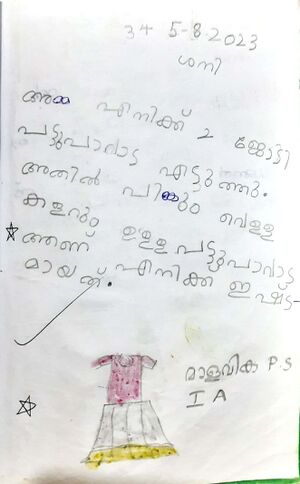 34 5-8-2023
ശനി
അമ്മ എനിക്ക് 2 ജോടി
പട്ടുപാവാട എടുത്തു.
അതിൽ പിങ്കും വെള്ള
കളറും ഉള്ള പട്ടുപാവാട
യാണ് എനിക്ക് ഇഷ്ട
മായത്.
മാളവിക P.S
I A